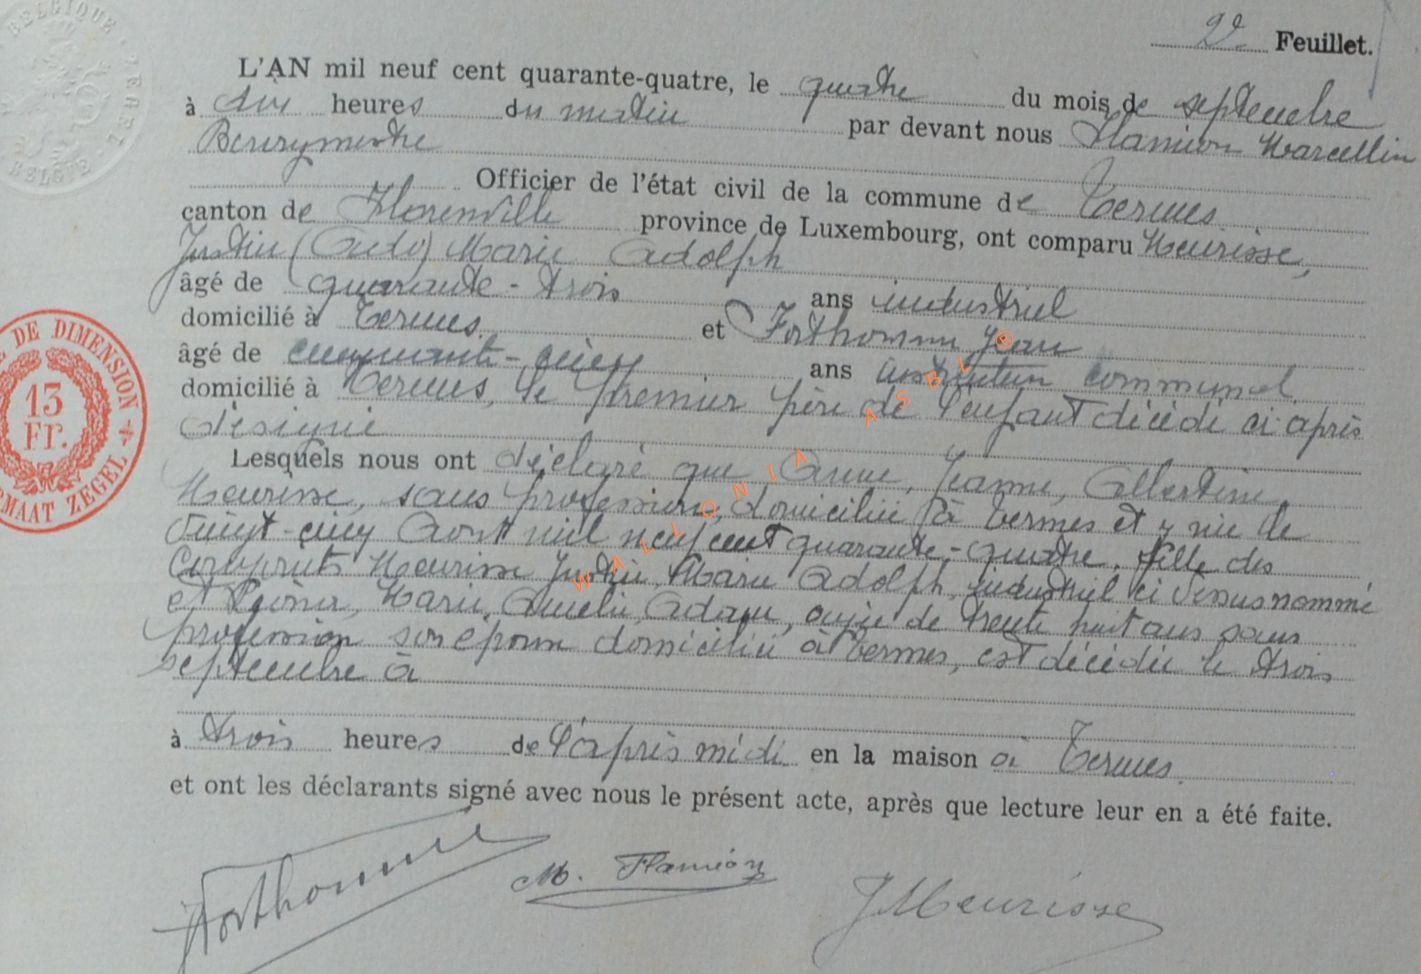 2e Feuillet.
L'AN mil neuf cent quarante-quatre, le quatre du mois de septembre
à dix heures du matin par devant nous Flamion Marcellin
Bourgmestre
Officier de l'état civil de la commune de Termes
canton de Florenville province de Luxembourg, ont comparu Meurisse,
Justin (Ado) Marie Adolph
âgé de quarante-trois ans industriel
domicilié à Termes. et Forthomme Jean
âgé de cinquante-ans instituteur communal
domicilié à Termes, le premier père de l'enfant décédé ci-après
désigné
Lesquels nous ont déclaré que Anne, Jeanne, Albertine,
Meurisse, sans profession, domiciliée à Termes et y née le
vingt-cinq Août mil neuf cent quarante-quatre, fille des
conjoints Meurisse Justin Marie Adolph, industriel ci-dessus nommé
et Marie, Amélie, Adam, âgée de trente huit ans sans
profession son épouse domiciliée à Termes, est décédée le trois
septembre à
à trois heures de l'après midi en la maison à Termes.
et ont les déclarants signé avec nous le présent acte, après que lecture leur en a été faite.
Forthomme M. Flamion J Meurisse
BELGIQUE
BELGIE
DE DIMENSION
13
Fr.
MAAT ZEGEL
WALLONIA ASBL ©